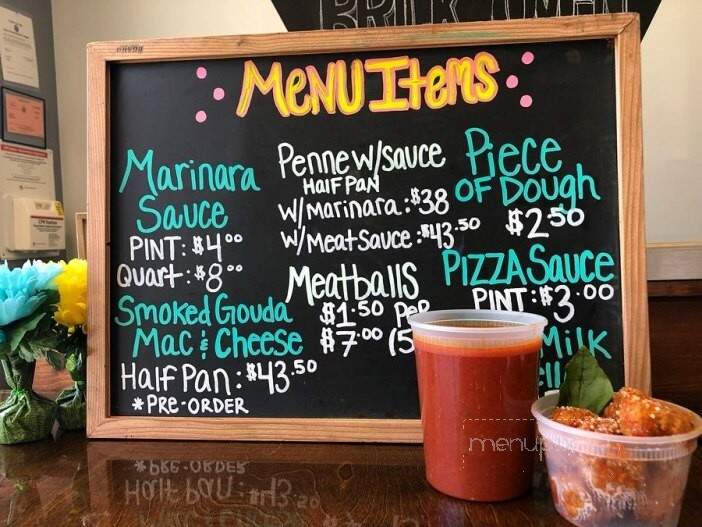 Menu Items
Marinara
Sauce
PINT: $4⁰⁰
Quart: $8⁰⁰
Smoked Gouda
Mac & Cheese
Half Pan: $43.⁵⁰
*PRE-ORDER
Penne w/sauce
HALF PAN
w/Marinara: $38
w/Meat Sauce: $43.⁵⁰
Meatballs
$1.50 Per
$7.⁰⁰ (5
Piece
OF Dough
$2⁵⁰
PIZZA Sauce
PINT: $3.⁰⁰
Milk